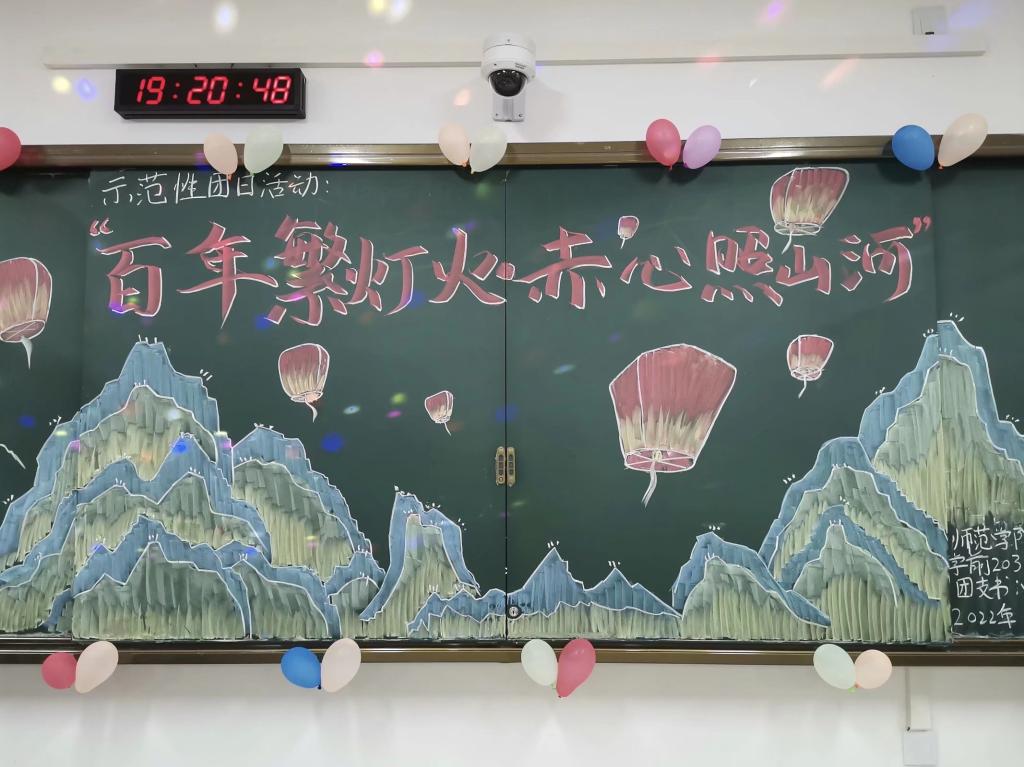 19:20:48
示范性团日活动:
“百年繁灯火 赤心照山河”
师范学院
学前203
团支书:
2022年